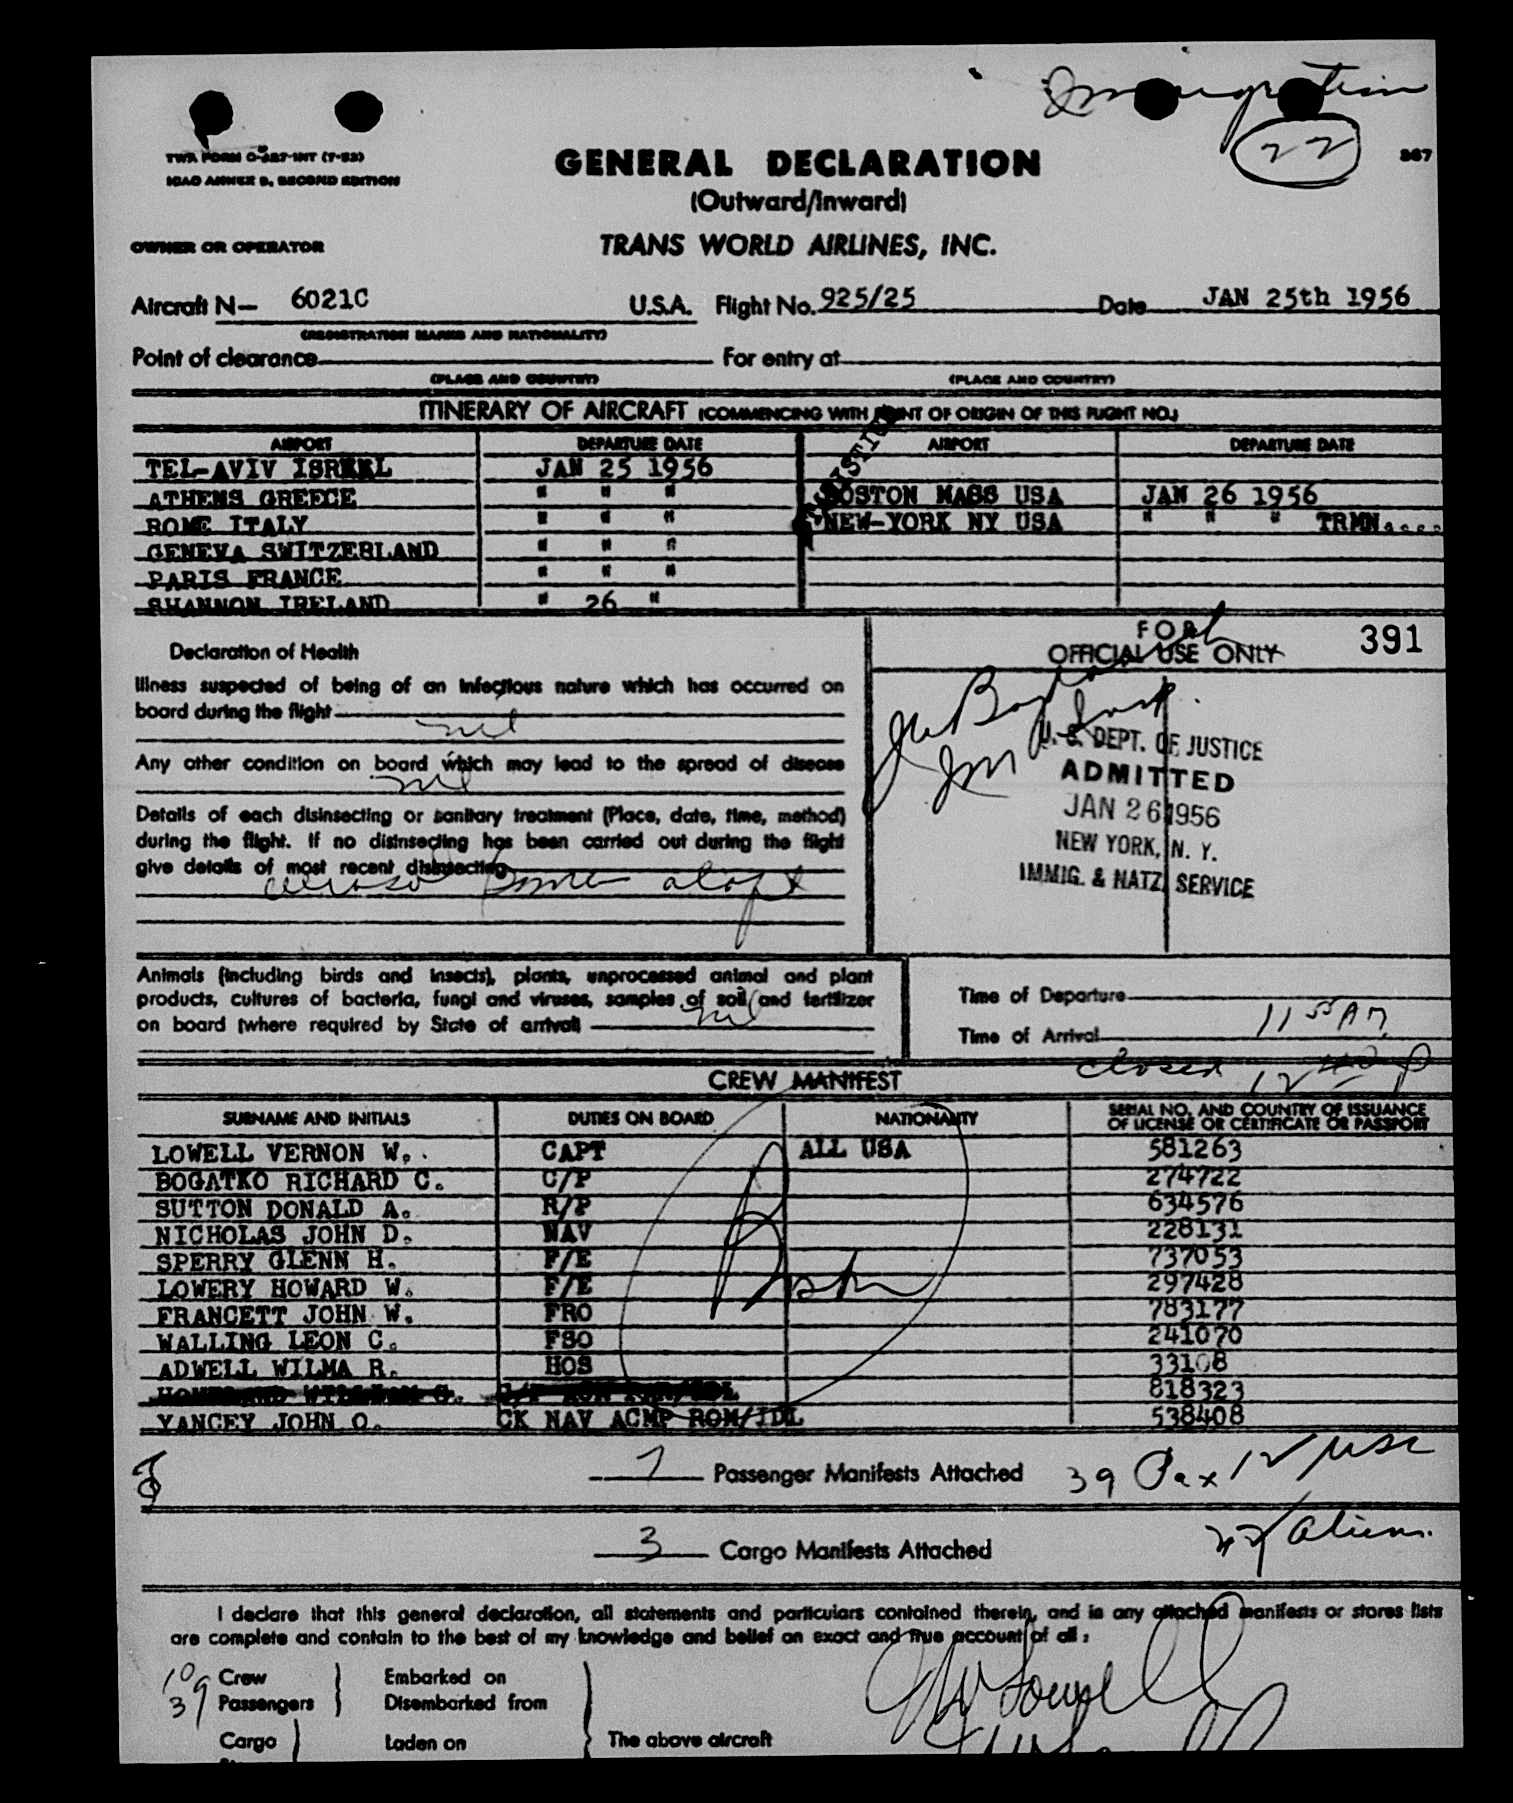 Immigration
22
TWA FORM O-327-INT (7-53)
ICAO ANNEX 9, SECOND EDITION
367
GENERAL DECLARATION
(Outward/Inward)
OWNER OR OPERATOR
TRANS WORLD AIRLINES, INC.
Aircraft N- 6021C U.S.A. Flight No. 925/25 Date JAN 25th 1956
(REGISTRATION MARKS AND NATIONALITY)
Point of clearance For entry at
(PLACE AND COUNTRY) (PLACE AND COUNTRY)
ITINERARY OF AIRCRAFT (COMMENCING WITH POINT OF ORIGIN OF THIS FLIGHT NO.)
AIRPORT DEPARTURE DATE AIRPORT DEPARTURE DATE
TEL-AVIV JAN 25 1956
ATHENS GREECE " " " BOSTON MASS USA JAN 26 1956
ROME ITALY " " " NEW-YORK NY USA " " " TRMN....
GENEVA SWITZERLAND " " "
PARIS FRANCE " " "
SHANNON IRELAND " 26 "
Declaration of Health
FOR
OFFICIAL USE ONLY
391
Illness suspected of being of an infectious nature which has occurred on
board during the flight
nil
Any other condition on board which may lead to the spread of disease
nil
Details of each disinsecting or sanitary treatment (Place, date, time, method)
during the flight. If no disinsecting has been carried out during the flight
give details of most recent disinsecting
U. S. DEPT. OF JUSTICE
ADMITTED
JAN 26 1956
NEW YORK, N. Y.
IMMIG. & NATZ. SERVICE
Animals (including birds and insects), plants, unprocessed animal and plant
products, cultures of bacteria, fungi and viruses, samples of soil and fertilizer
on board (where required by State of arrival)
nil
Time of Departure
Time of Arrival 11 55 AM
closed 12 40 P
CREW MANIFEST
SURNAME AND INITIALS DUTIES ON BOARD NATIONALITY SERIAL NO. AND COUNTRY OF ISSUANCE
OF LICENSE OR CERTIFICATE OR PASSPORT
LOWELL VERNON W. CAPT ALL USA 581263
BOGATKO RICHARD C. C/P 274722
SUTTON DONALD A. R/P 634576
NICHOLAS JOHN D. NAV 228131
SPERRY GLENN H. F/E 737053
LOWERY HOWARD W. F/E 297428
FRANCETT JOHN W. FRO 783177
WALLING LEON C. FSO 241070
ADWELL WILMA R. HOS 33108
818323
YANCEY JOHN O. CK NAV ACMP ROM/IDL 538408
7 Passenger Manifests Attached 39 Pax 12 usc
3 Cargo Manifests Attached aliens.
I declare that this general declaration, all statements and particulars contained therein, and in any attached manifests or stores lists
are complete and contain to the best of my knowledge and belief an exact and true account of all:
10 Crew Embarked on
39 Passengers Disembarked from
Cargo Laden on The above aircraft